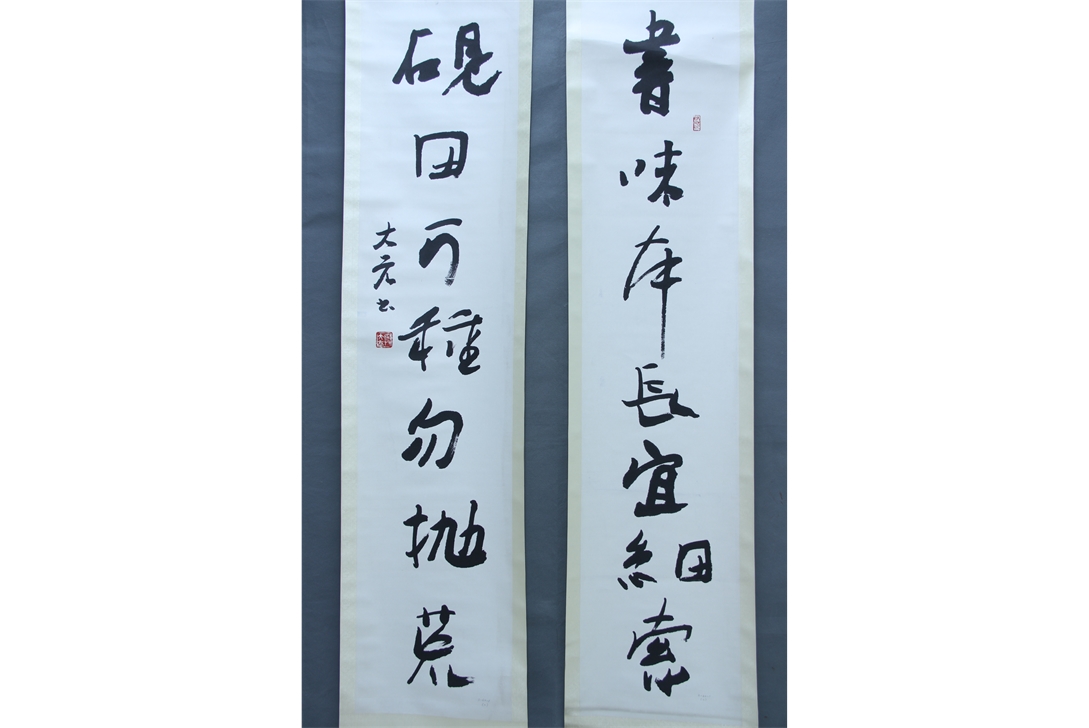 書味本長宜細索
硯田可種勿抛荒
大元书